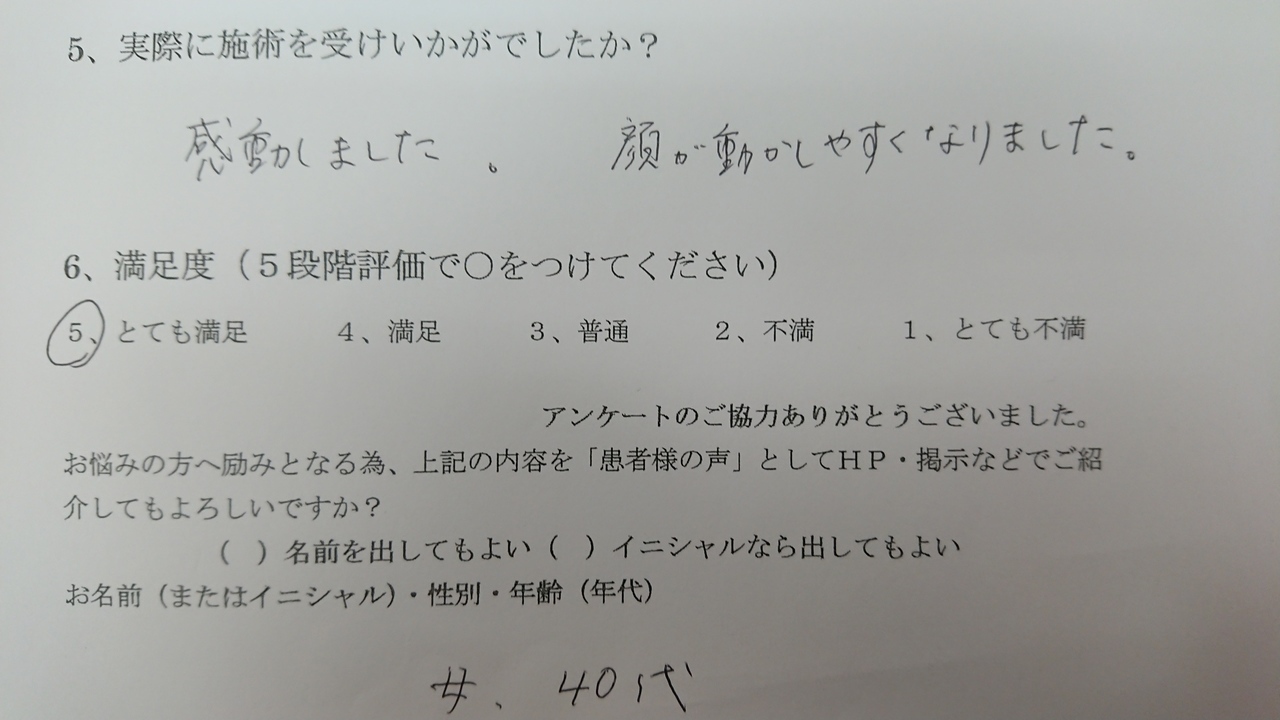 5、実際に施術を受けいかがでしたか？
感動しました。 顔が動かしやすくなりました。
6、満足度（５段階評価で〇をつけてください）
５、とても満足 ４、満足 ３、普通 ２、不満 １、とても不満
アンケートのご協力ありがとうございました。
お悩みの方へ励みとなる為、上記の内容を「患者様の声」としてＨＰ・掲示などでご紹
介してもよろしいですか？
（ ）名前を出してもよい（ ）イニシャルなら出してもよい
お名前（またはイニシャル）・性別・年齢（年代）
女、40代